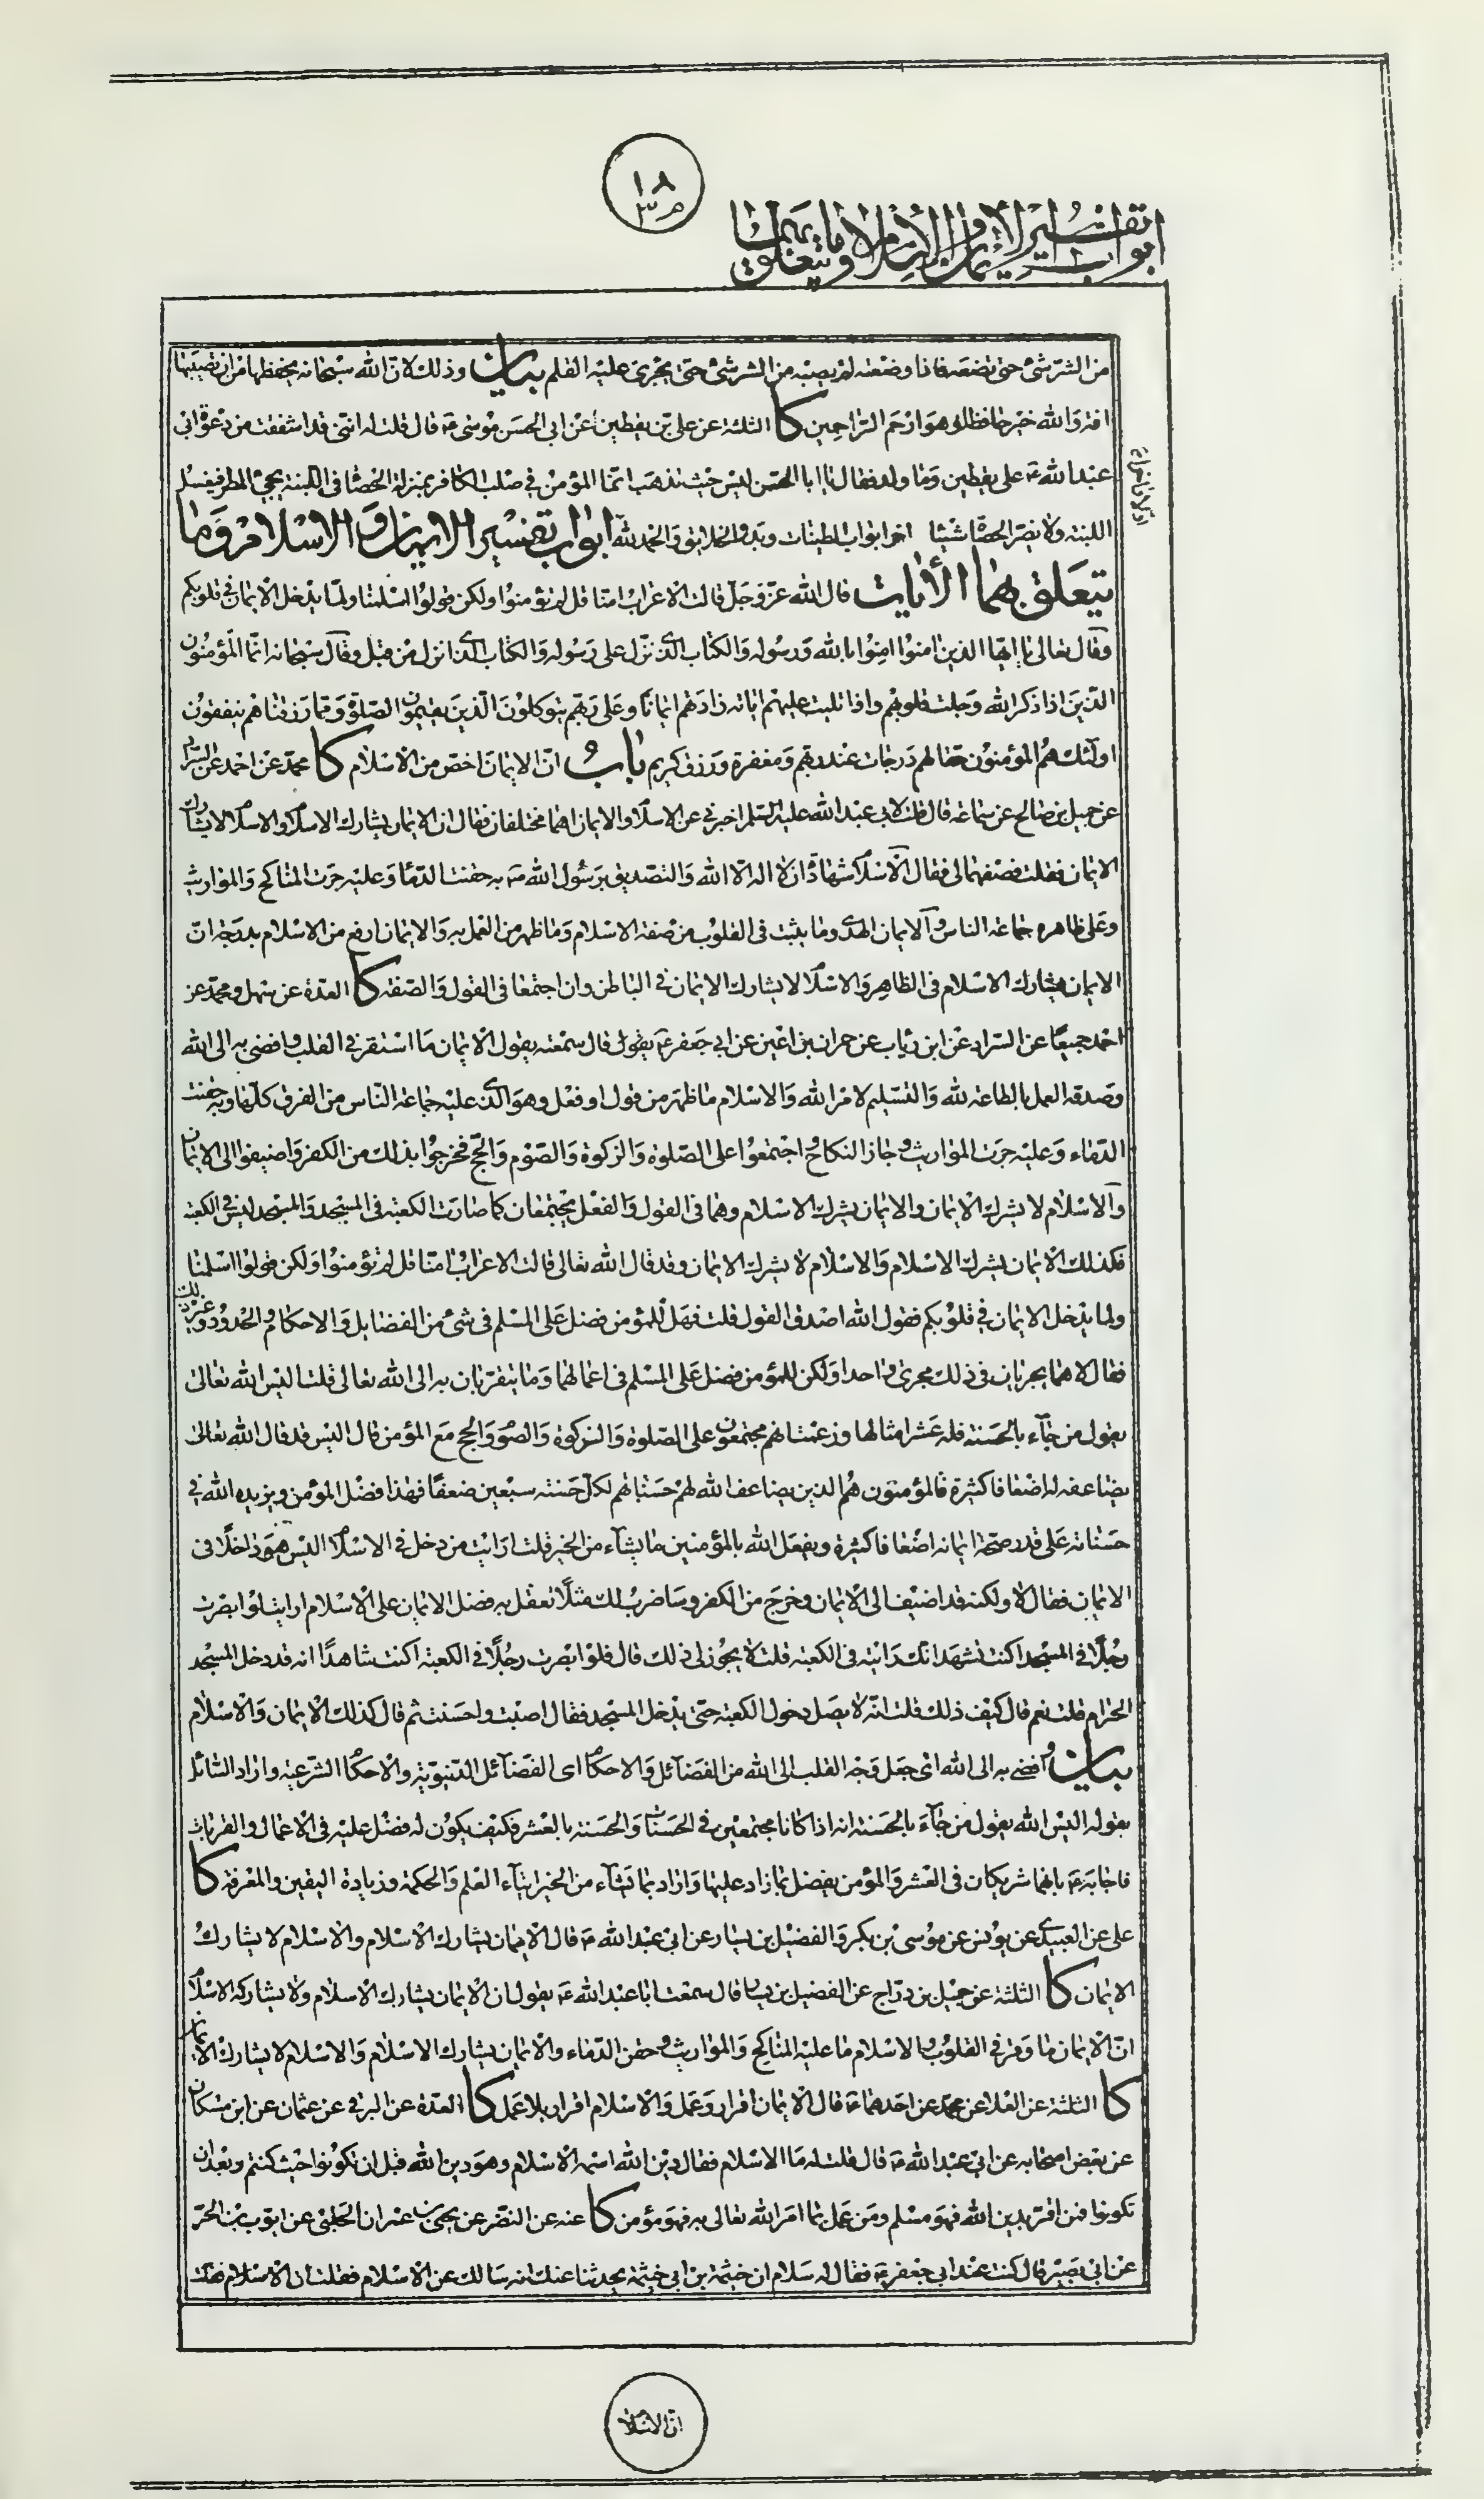 ١٨
م ٣
ابواب تفسير الايمان والاسلام وما يتعلق بهما
من الشر شئ حتى تضعه فاذا وضعته لم يصبه من الشر شئ حتى يجرى عليه القلم بيان وذلك لان الله سبحانه يحفظها من ان تصيبها
افة والله خير حافظا وهو ارحم الراحمين كا الثلثة عن على بن يقطين عن ابى الحسن موسى ع قال قلت له اننى قد اشفقت من دعوة ابى
عبد الله ع على يقطين وما ولد فقال يا ابا الحسن ليس حيث تذهب انما المؤمن فى صلب الكافر بمنزلة الحصا فى اللبنة يجئ المطر فيغسل
اللبنة ولا يضر الحصاة شيئا اخر ابواب الطينات وبدو الخلايق والحمد لله ابواب تفسير الايمان و الاسلام وما
يتعلق بهما الأيات قال الله عز وجل قالت الاعراب امنا قل لم تؤمنوا ولكن قولوا اسلمنا ولما يدخل الايمان فى قلوبكم
وقال تعالى يا ايها الذين امنوا امنوا بالله ورسوله والكتاب الذى نزل على رسوله والكتاب الذى انزل من قبل وقال سبحانه انما المؤمنون
الذين اذا ذكر الله وجلت قلوبهم واذا تليت عليهم اياته زادتهم ايمانا وعلى ربهم يتوكلون الذين يقيمون الصلوة ومما رزقناهم ينفقون
اولئك هم المؤمنون حقا لهم درجات عند ربهم ومغفرة ورزق كريم باب ان الايمان اخص من الاسلام كا محمد عن احمد عن السراد
عن جميل بن صالح عن سماعة قال قلت لابى عبد الله عليه السلم اخبرنى عن الاسلام والايمان اهما مختلفان فقال ان الايمان يشارك الاسلام والاسلام لا يشارك
الايمان فقلت فصفهما لى فقال الاسلام شهادة ان لا اله الا الله والتصديق برسول الله ص به حقنت الدماء وعليه جرت المناكح والمواريث
وعلى ظاهره جماعة الناس والايمان الهدى وما يثبت فى القلوب من صفة الاسلام وما ظهر من العمل به والايمان ارفع من الاسلام بدرجة ان
الايمان يشارك الاسلام فى الظاهر والاسلام لا يشارك الايمان فى الباطن وان اجتمعا فى القول والصفة كا العدة عن سهل ومحمد عن
احمد جميعا عن السراد عن ابن رياب عن حمران بن اعين عن ابى جعفر ع يقول قال سمعته يقول الايمان ما استقر فى القلب وافضى به الى الله
وصدقه العمل بالطاعة لله والتسليم لامر الله والاسلام ما ظهر من قول او فعل وهو الذى عليه جماعة الناس من الفرق كلها وبه حقنت
الدماء وعليه جرت المواريث وجاز النكاح واجتمعوا على الصلوة والزكوة والصوم والحج فخرجوا بذلك من الكفر واضيفوا الى الايمان
والاسلام لا يشرك الايمان والايمان يشرك الاسلام وهما فى القول والفعل يجتمعان كما صارت الكعبة فى المسجد والمسجد ليس فى الكعبة
فكذلك الايمان يشرك الاسلام والاسلام لا يشرك الايمان وقد قال الله تعالى قالت الاعراب امنا قل لم تؤمنوا ولكن قولوا اسلمنا
ولما يدخل الايمان فى قلوبكم فقول الله اصدق القول قلت فهل للمؤمن فضل على المسلم فى شئ من الفضايل والاحكام والحدود وغير ذلك
فقال لا هما يجريان فى ذلك مجرى واحدا ولكن للمؤمن فضل على المسلم فى اعمالهما وما يتقربان به الى الله تعالى قلت اليس الله تعالى
يقول من جاء بالحسنة فله عشر امثالها وزعمت انهم مجتمعون على الصلوة والزكوة والصوم والحج مع المؤمن قال اليس قد قال الله تعالى
يضاعفه له اضعافا كثيرة فالمؤمنون هم الذين يضاعف الله لهم حسناتهم لكل حسنة سبعين ضعفا فهذا فضل المؤمن ويزيده الله فى
حسناته على قدر صحة ايمانه اضعافا كثيرة ويفعل الله بالمؤمنين ما يشاء من الخير قلت ارايت من دخل فى الاسلام اليس هو داخلا فى
الايمان فقال لا ولكنه قد اضيف الى الايمان وخرج من الكفر وساضرب لك مثلا تعقل به فضل الايمان على الاسلام ارايت لو ابصرت
رجلا فى المسجد اكنت تشهد انك رايته فى الكعبة قلت لا يجوز لى ذلك قال فلو ابصرت رجلا فى الكعبة اكنت شاهدا انه قد دخل المسجد
الحرام قلت نعم قال كيف ذلك قلت انه لا يصل دخول الكعبة حتى يدخل المسجد فقال اصبت واحسنت ثم قال كذلك الايمان والاسلام
بيان أفضى به الى الله اى جعل وجه القلب الى الله من الفضائل والاحكام اى الفضائل الدنيوية والاحكام الشرعية واراد السائل
بقوله اليس الله يقول من جاء بالحسنة انه اذا كانا مجتمعين فى الحسنات والحسنة بالعشر فكيف يكون له فضل عليه فى الاعمال والقربات
فاجابه ع بانهما شريكان فى العشر والمؤمن يفضل بما زاد عليها واراد بما يشاء من الخير ايتاء العلم والحكمة وزيادة اليقين والمعرفة كا
على عن العبيدى عن يونس عن موسى بن بكر والفضيل بن يسار عن ابى عبد الله ع قال الايمان يشارك الاسلام والاسلام لا يشارك
الايمان كا الثلثة عن جميل بن دراج عن الفضيل بن يسار قال سمعت ابا عبد الله ع يقول ان الايمان يشارك الاسلام ولا يشاركه الاسلام
ان الايمان ما وقر فى القلوب والاسلام ما عليه المناكح والمواريث وحقن الدماء والايمان يشارك الاسلام والاسلام لا يشارك الايمان
كا الثلثة عن العلا عن محمد عن احدهما ع قال الايمان اقرار وعمل والاسلام اقرار بلا عمل كا العدة عن البرقى عن عثمان عن ابن مسكان
عن بعض اصحابه عن ابى عبد الله ع قال قلت له ما الاسلام فقال دين الله اسمه الاسلام وهو دين الله قبل ان تكونوا حيث كنتم وبعد ان
تكونوا فمن اقر بدين الله فهو مسلم ومن عمل بما امر الله تعالى به فهو مؤمن كا عنه عن النضر عن يحيى بن عمران الحلبى عن ايوب بن الحر
عن ابى بصير قال كنت عند ابى جعفر ع فقال له سلام ان خيثمة بن ابى خيثمة يحدثنا عنك انه سالك عن الاسلام فقلت ان الاسلام فقلت
ان الاسلام